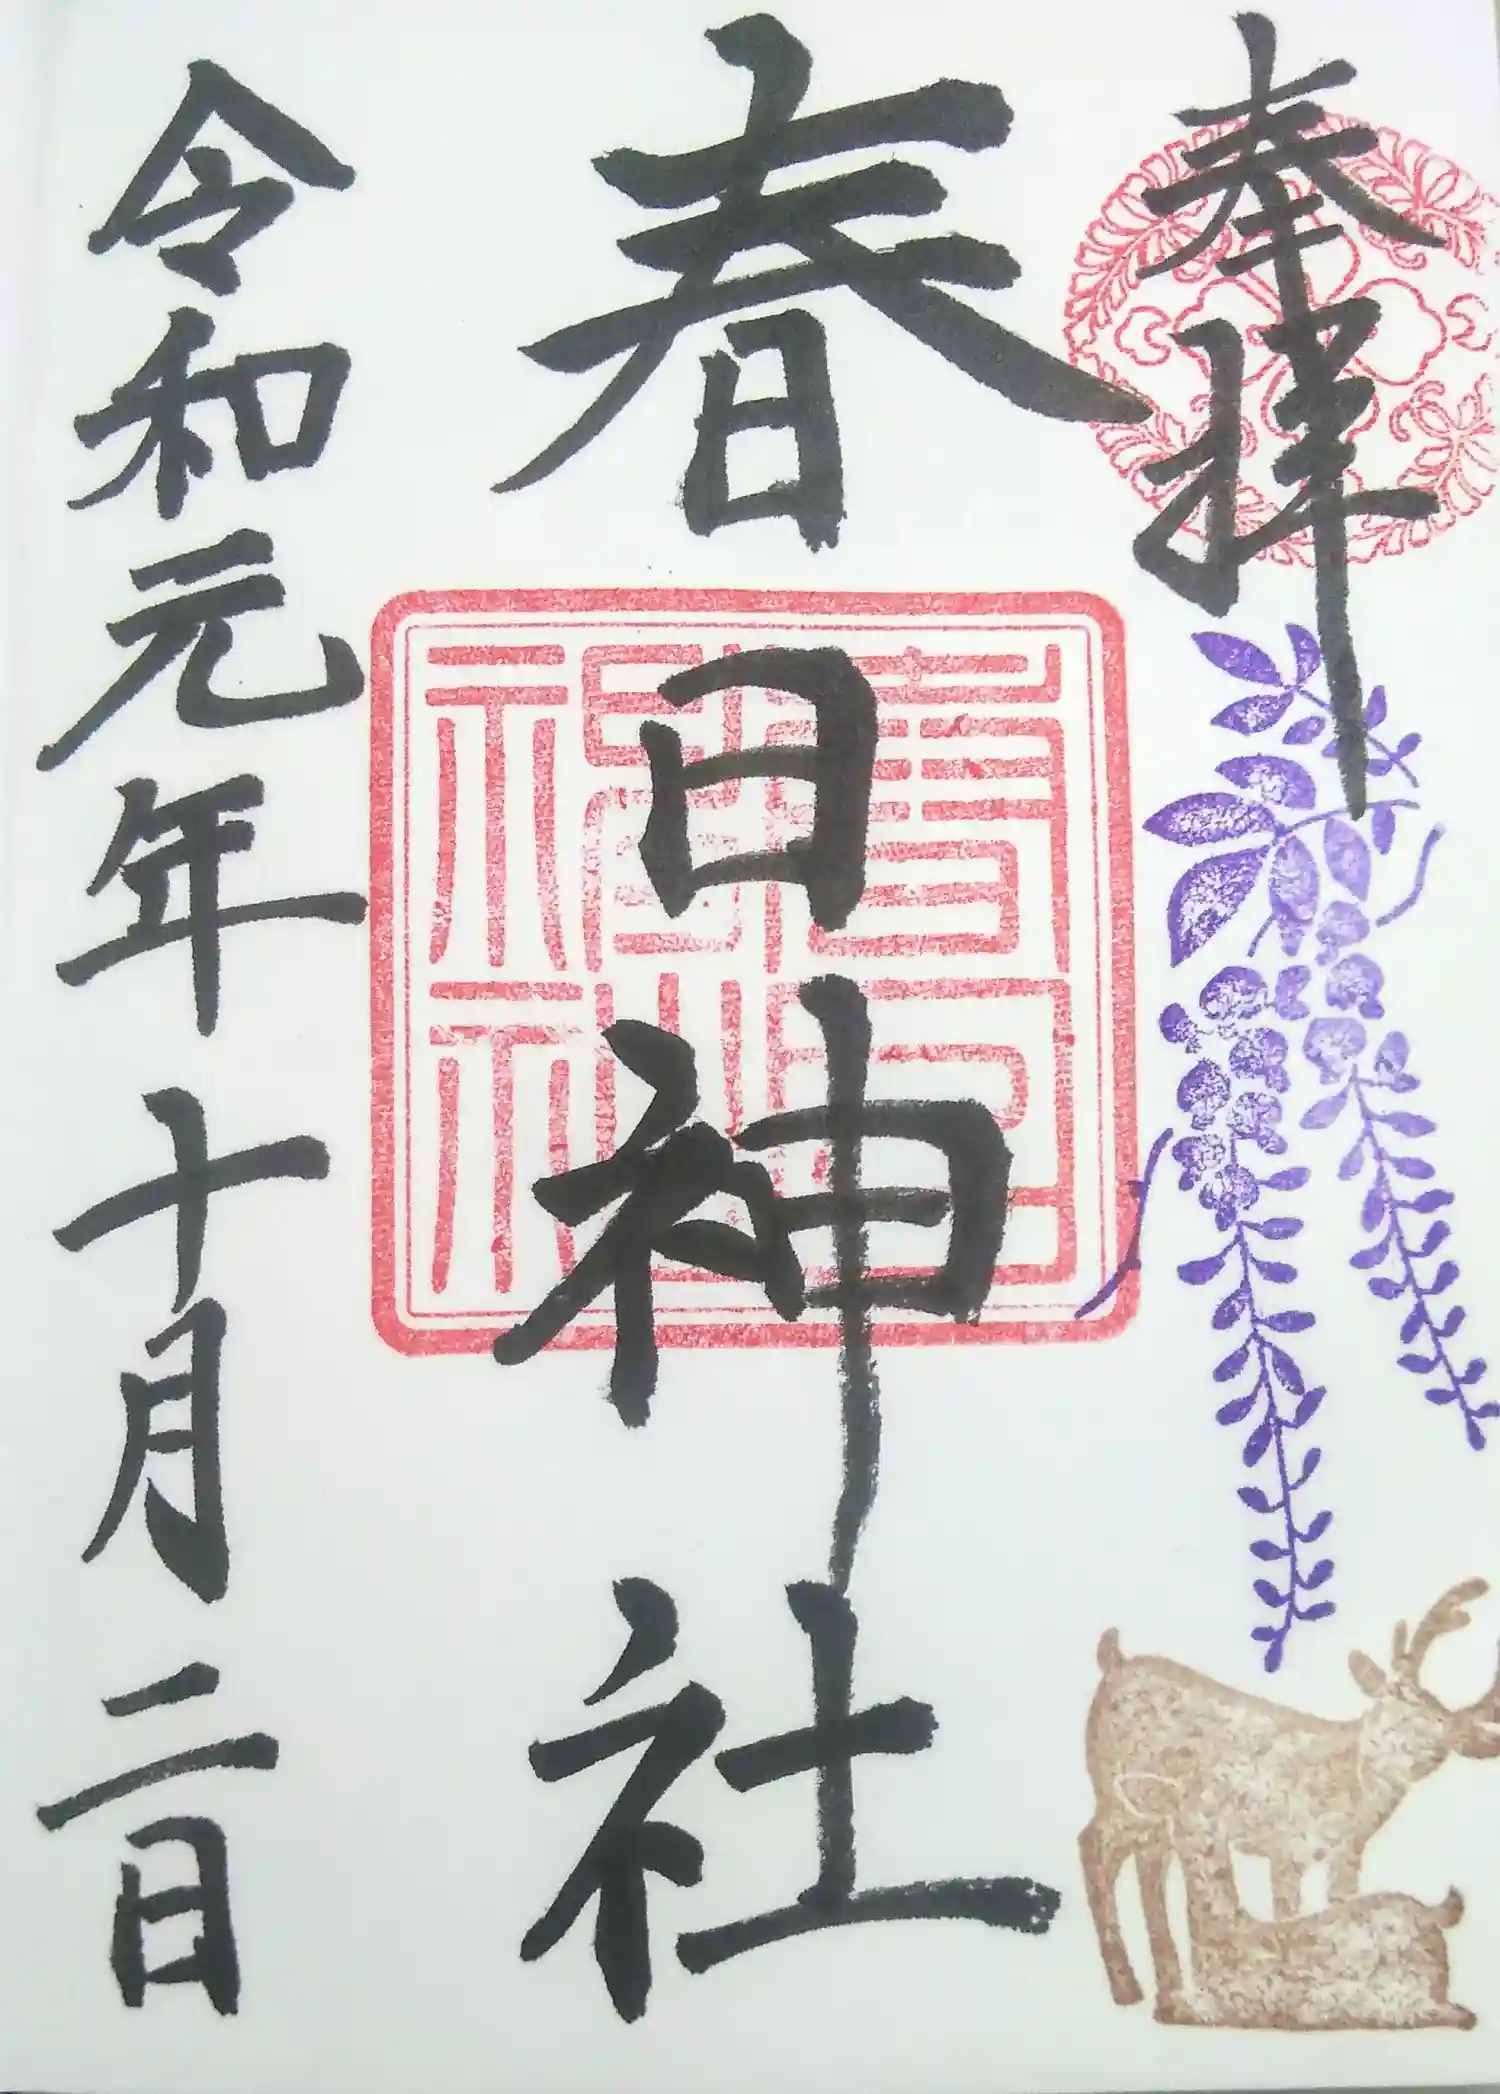 奉拝
春日神社
令和元年十月二日
春日神社印